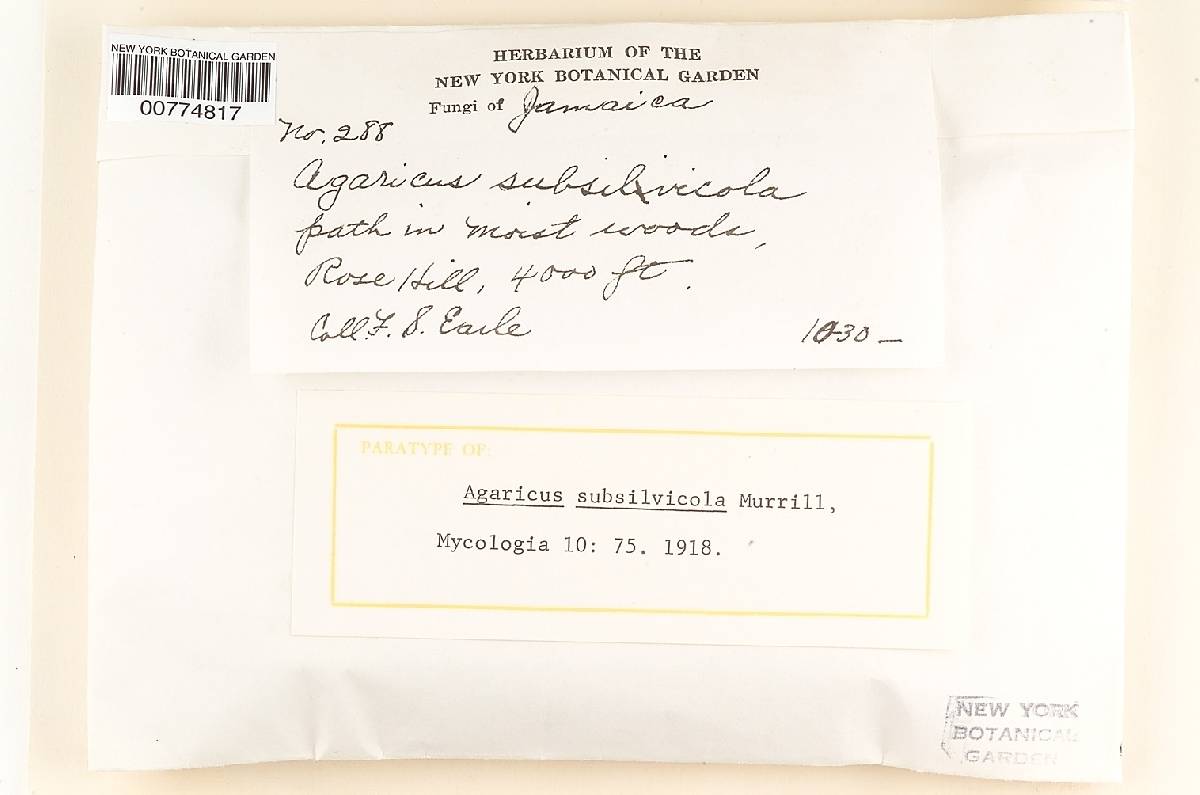 NEW YORK BOTANICAL GARDEN
00774817
HERBARIUM OF THE
NEW YORK BOTANICAL GARDEN
Fungi of Jamaica
No. 288
Agaricus subsilvicola
path in moist woods,
Rose Hill, 4000 ft.
Coll. F. S. Earle
PARATYPE OF:
Agaricus subsilvicola Murrill,
Mycologia 10: 75. 1918.
NEW YORK
BOTANICAL
GARDEN